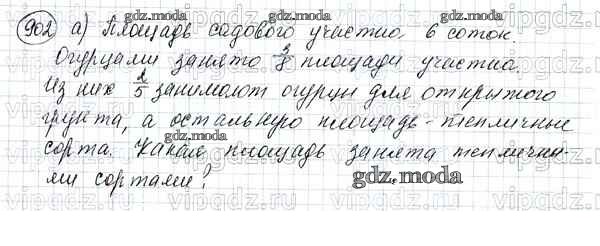 902 а) Площадь садового участка 6 соток
Огурцами занято 3/8 площади участка.
Из них 2/5 занимают огурцы для открытого
грунта, а остальную площадь - тепличные
сорта. Какая площадь занята теплични-
ми сортами?
gdz.moda